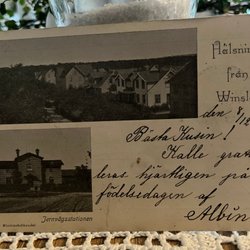 Hälsnin
från
Winsl
den 1/12
Bästa Kusin!
Kalle gratu
leras hjärtligen på
födelsedagen af
Albin
Jernvägsstationen